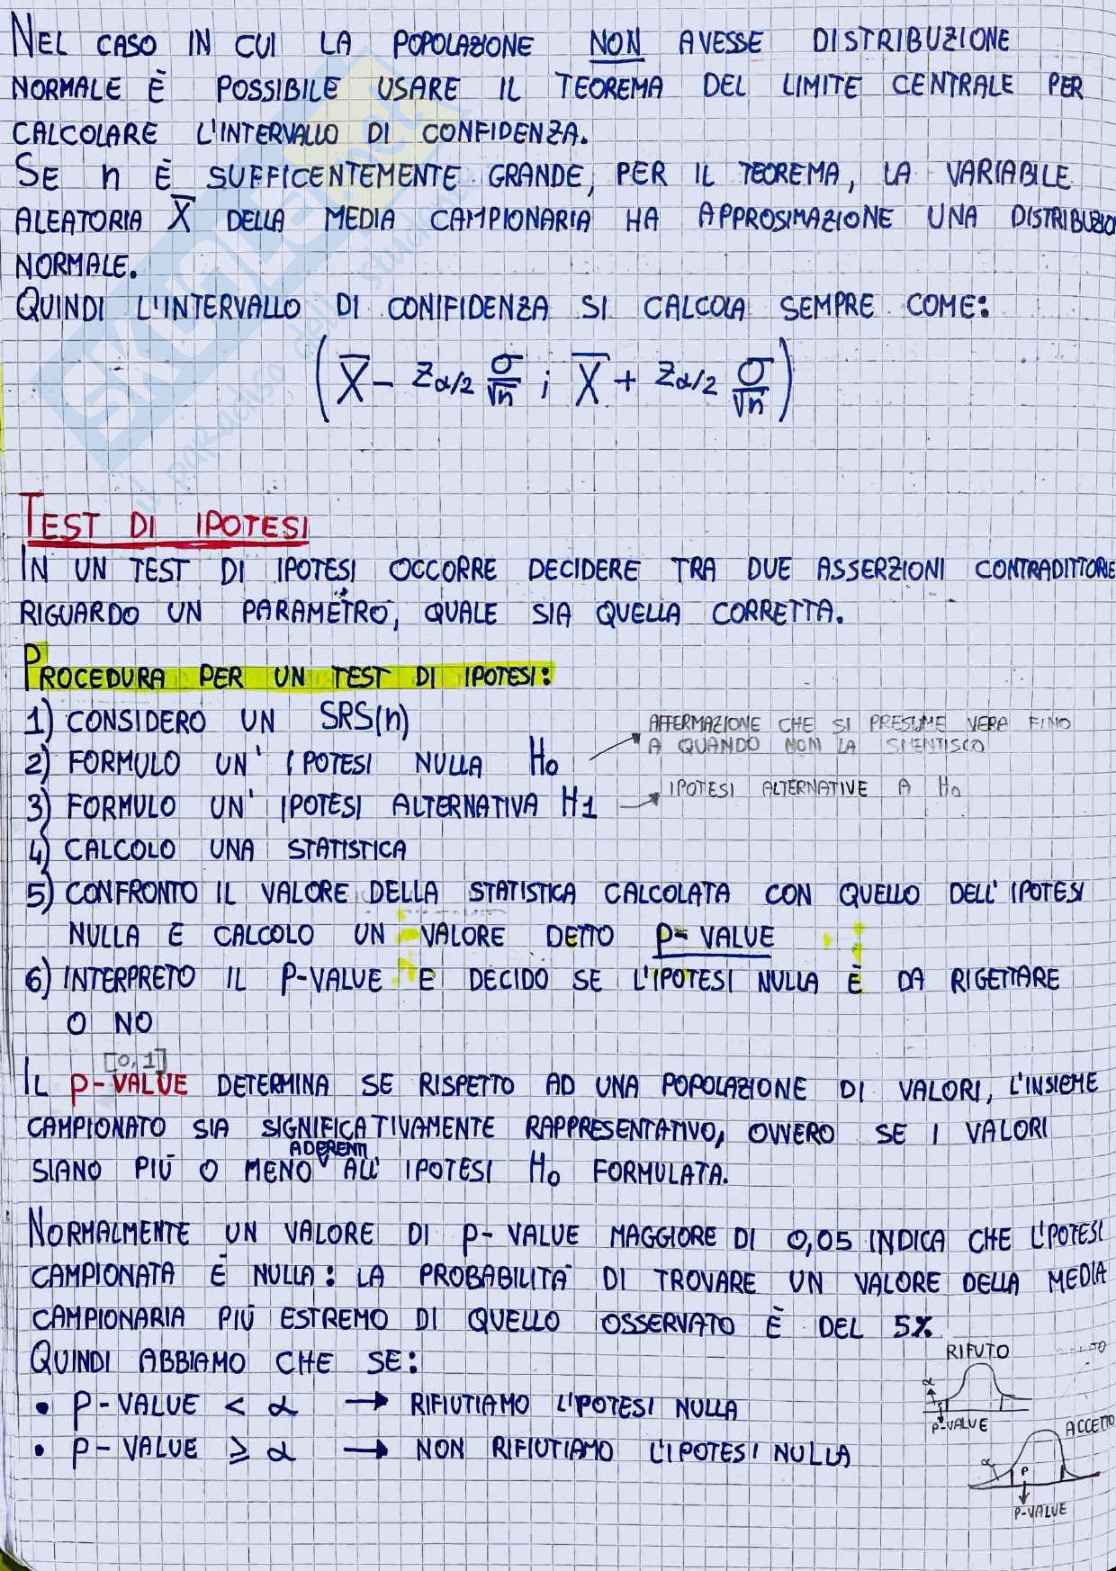 NEL CASO IN CUI LA POPOLAZIONE NON AVESSE DISTRIBUZIONE
NORMALE È POSSIBILE USARE IL TEOREMA DEL LIMITE CENTRALE PER
CALCOLARE L'INTERVALLO DI CONFIDENZA.
SE n È SUFFICENTEMENTE GRANDE, PER IL TEOREMA, LA VARIABILE
ALEATORIA X̅ DELLA MEDIA CAMPIONARIA HA APPROSIMAZIONE UNA DISTRIBUZIO
NORMALE.
QUINDI L'INTERVALLO DI CONIFIDENZA SI CALCOLA SEMPRE COME:
(X̅ - Zα/2 σ/√n ; X̅ + Zα/2 σ/√n)
TEST DI IPOTESI
IN UN TEST DI IPOTESI OCCORRE DECIDERE TRA DUE ASSERZIONI CONTRADITTORIE
RIGUARDO UN PARAMETRO, QUALE SIA QUELLA CORRETTA.
PROCEDURA PER UN TEST DI IPOTESI:
1) CONSIDERO UN SRS(n)
2) FORMULO UN' IPOTESI NULLA H0 → AFFERMAZIONE CHE SI PRESUME VERA FINO
A QUANDO NON LA SMENTISCO
3) FORMULO UN' IPOTESI ALTERNATIVA H1 → IPOTESI ALTERNATIVE A H0
4) CALCOLO UNA STATISTICA
5) CONFRONTO IL VALORE DELLA STATISTICA CALCOLATA CON QUELLO DELL'IPOTESI
NULLA E CALCOLO UN VALORE DETTO P-VALUE
6) INTERPRETO IL P-VALUE E DECIDO SE L'IPOTESI NULLA È DA RIGETTARE
O NO
[0,1]
IL P-VALUE DETERMINA SE RISPETTO AD UNA POPOLAZIONE DI VALORI, L'INSIEME
CAMPIONATO SIA SIGNIFICATIVAMENTE RAPPRESENTATIVO, OVVERO SE I VALORI
SIANO PIÙ O MENO ADERENTI ALL' IPOTESI H0 FORMULATA.
NORMALMENTE UN VALORE DI P-VALUE MAGGIORE DI 0,05 INDICA CHE L'IPOTESI
CAMPIONATA È NULLA: LA PROBABILITÀ DI TROVARE UN VALORE DELLA MEDIA
CAMPIONARIA PIÙ ESTREMO DI QUELLO OSSERVATO È DEL 5%
QUINDI ABBIAMO CHE SE:
• P-VALUE < α → RIFIUTIAMO L'IPOTESI NULLA
• P-VALUE ≥ α → NON RIFIUTIAMO L'IPOTESI NULLA
RIFIUTO
α
P-VALUE
ACCETTO
α
P
P-VALUE